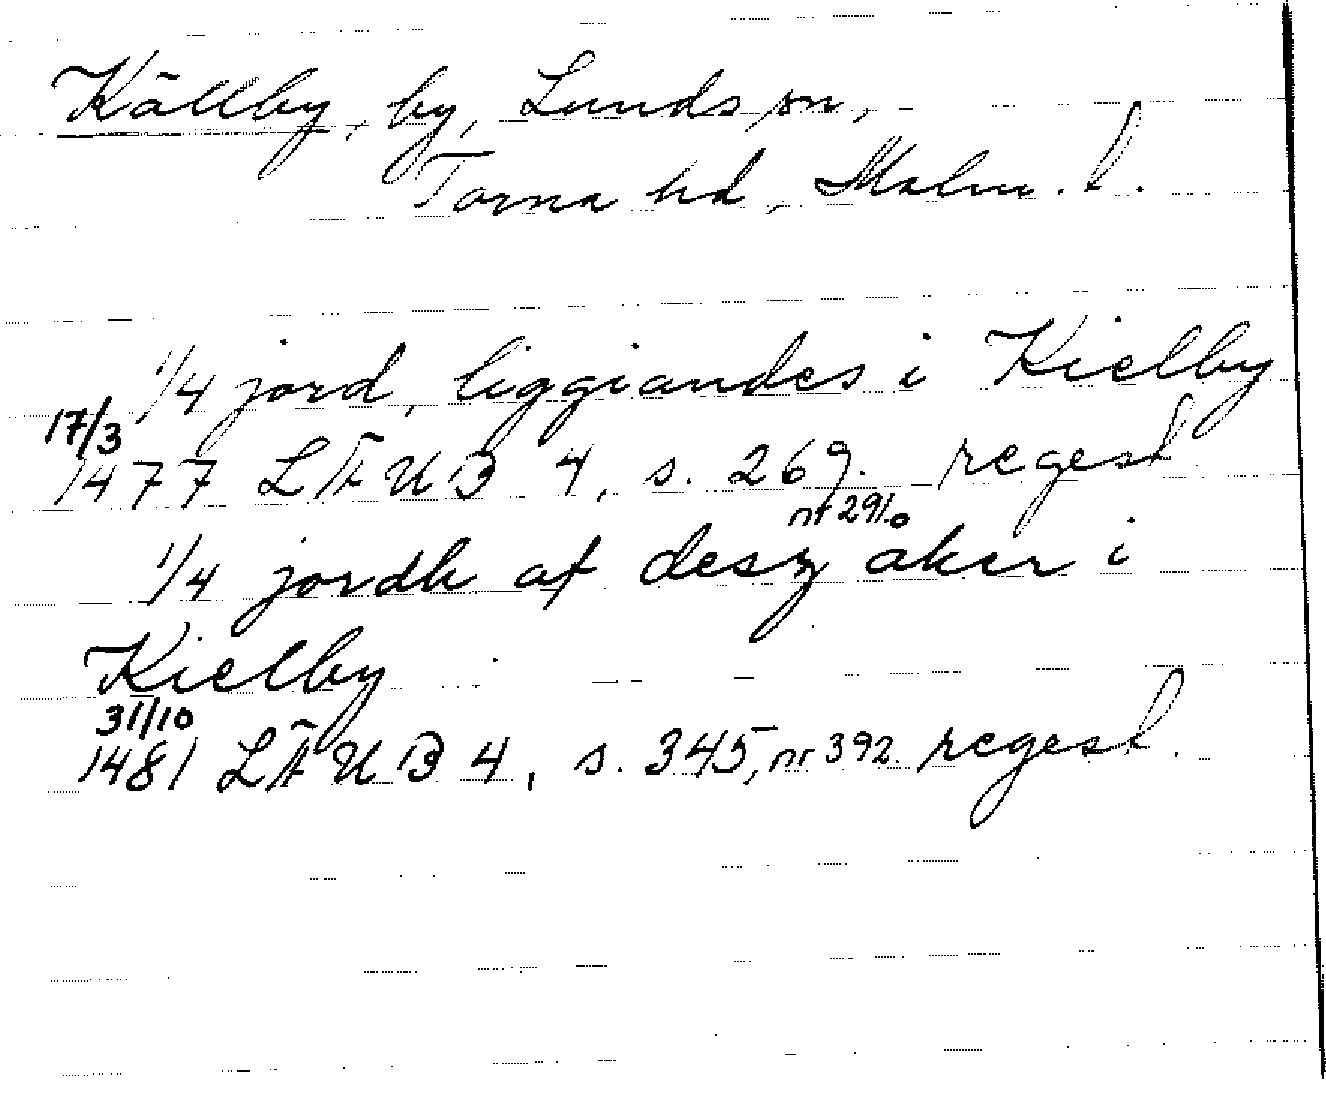 Källby, by, Lunds sn,
Torna hd, Malm. l.
1/4 jord, liggiandes i Kielby
17/3
1477 LÄUB 4, s. 269. regest
nr 291.
1/4 jordh af desz aker i
Kielby
31/10
1481 LÄUB 4, s. 345, nr 392. regest.